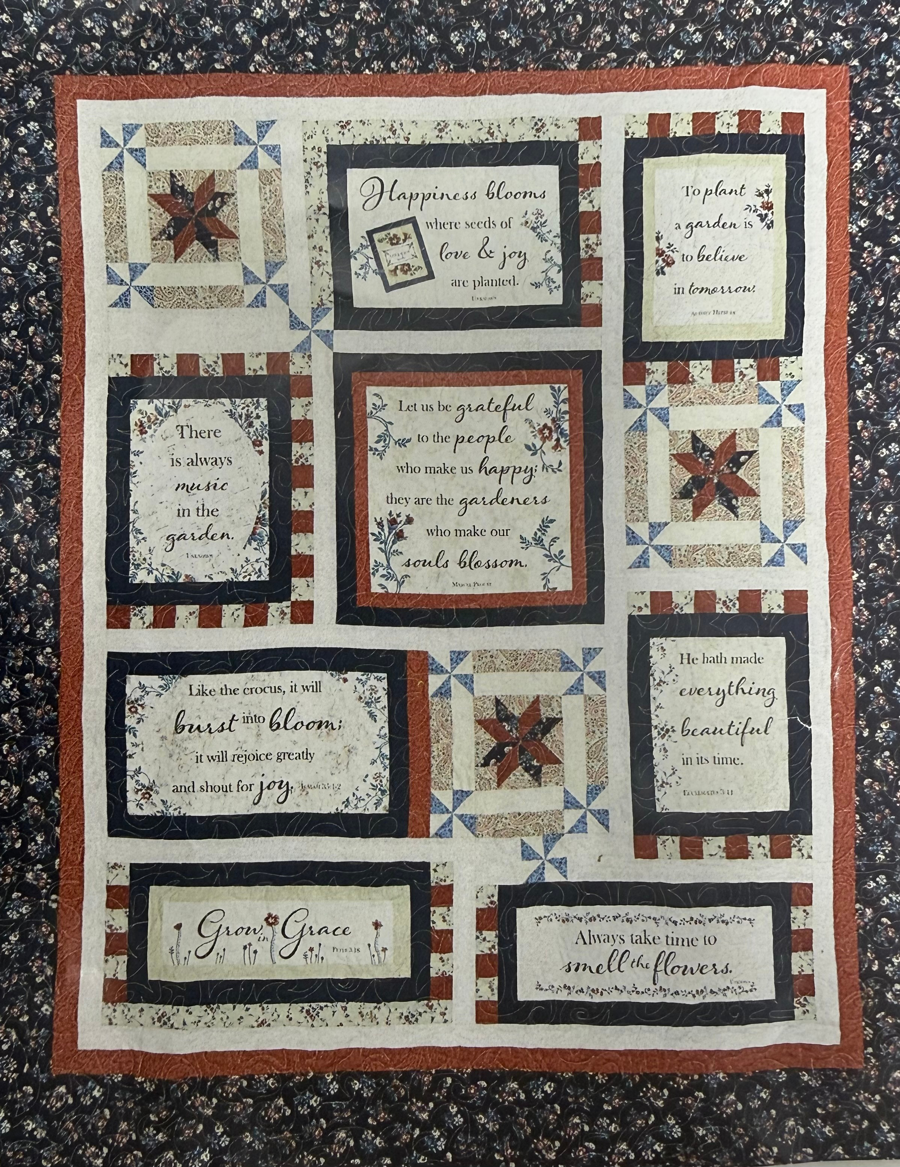 Happiness blooms
where seeds of
love & joy
are planted.
Unknown
To plant
a garden is
to believe
in tomorrow.
There
is always
music
in the
garden.
Unknown
Let us be grateful
to the people
who make us happy;
they are the gardeners
who make our
souls blossom.
Marcel Proust
Like the crocus, it will
burst into bloom;
it will rejoice greatly
and shout for joy. Isaiah 35:1-2
He hath made
everything
beautiful
in its time.
Ecclesiastes 3:11
Grow in Grace
Peter 3:18
Always take time to
smell the flowers.